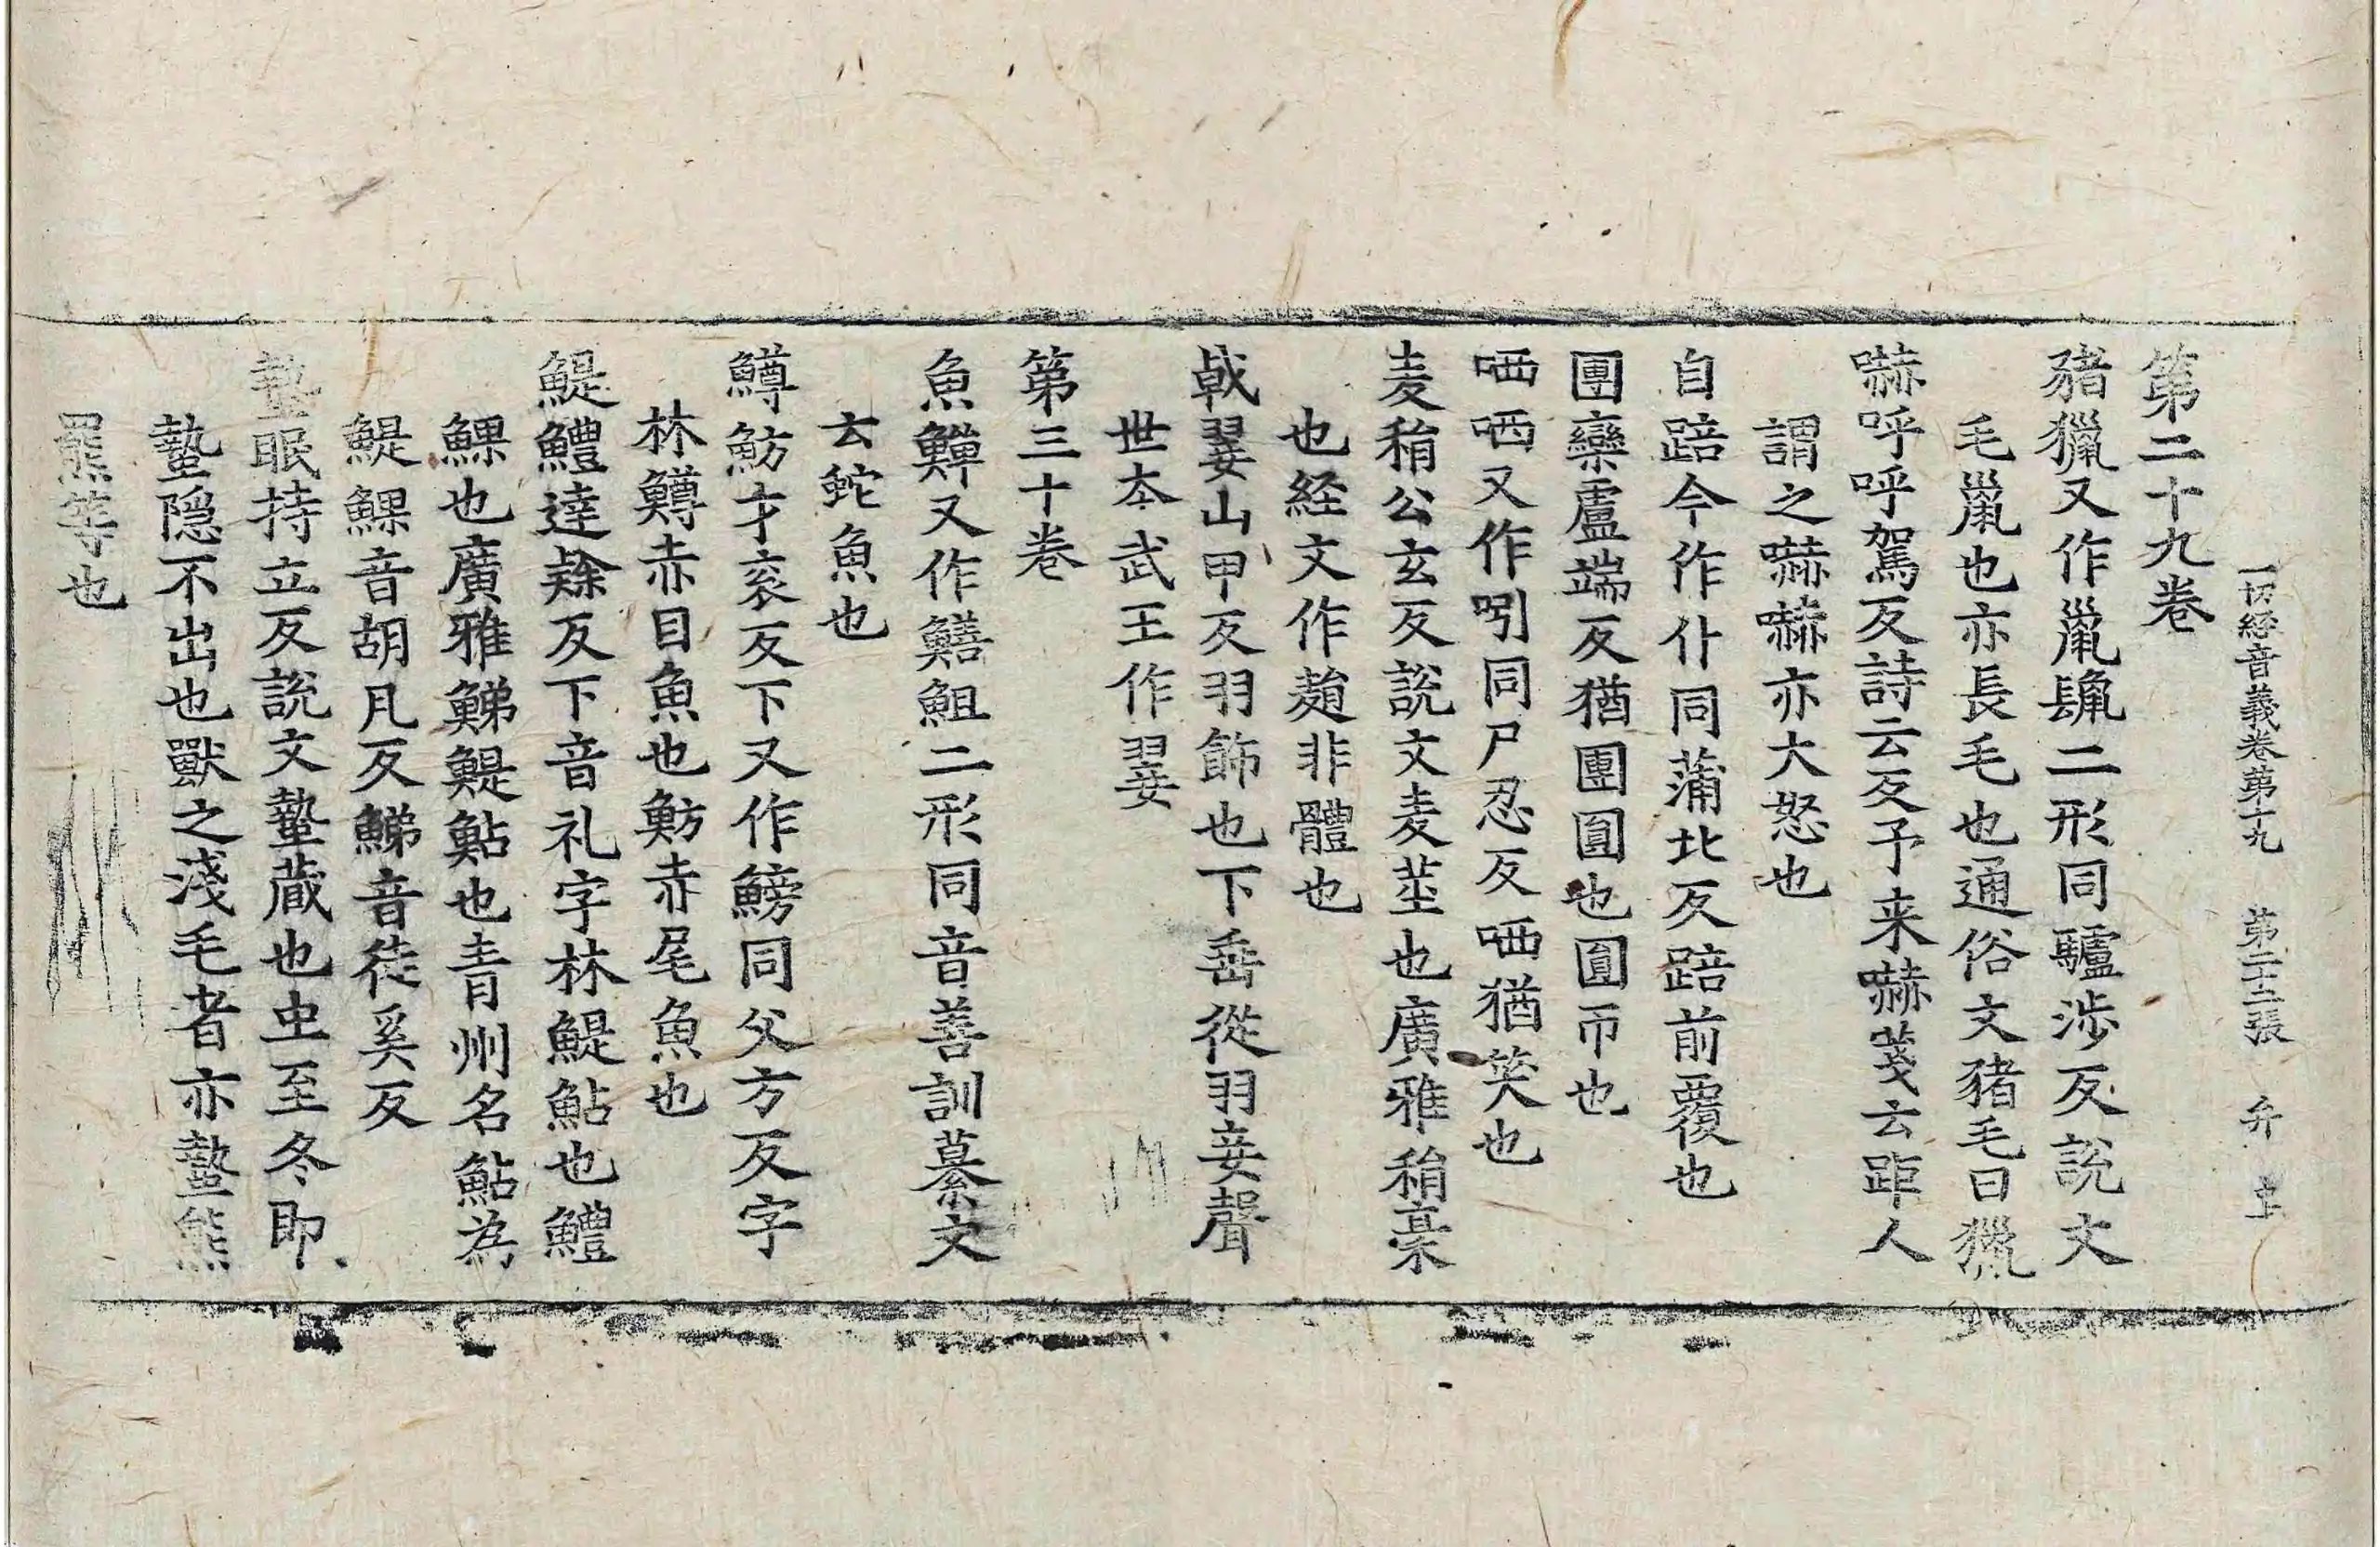 一切経音義卷第十九 第二十二張 弁 主
第二十九卷
豬獵又作巤䝓二形同驢涉反說文
毛巤也亦長毛也通俗文豬毛曰獵
嚇呼呼駕反詩云反予来嚇箋云距人
謂之嚇嚇亦大怒也
自踣今作仆同蒲北反踣前覆也
團欒盧端反猶團圓也圓帀也
哂哂又作吲同尸忍反哂猶笑也
麦䅌公玄反說文麦莖也廣雅䅌稾
也経文作䴺非體也
㦸翣山甲反羽飾也下垂從羽妾聲
世夲武王作翣
第三十卷
魚鱓又作鱔䱇二形同音善訓纂文
云蛇魚也
鱒魴才衮反下又作鰟同父方反字
林鱒赤目魚也魴赤尾魚也
鯷鱧達𮥼反下音礼字林鯷鮎也鱧
鯶也廣雅鮷鯷鮎也青州名鮎為
鯷鯶音胡凡反鮷音徒奚反
蟄眠持立反說文蟄蔵也虫至冬即
蟄隠不出也獸之淺毛者亦蟄熊
羆等也